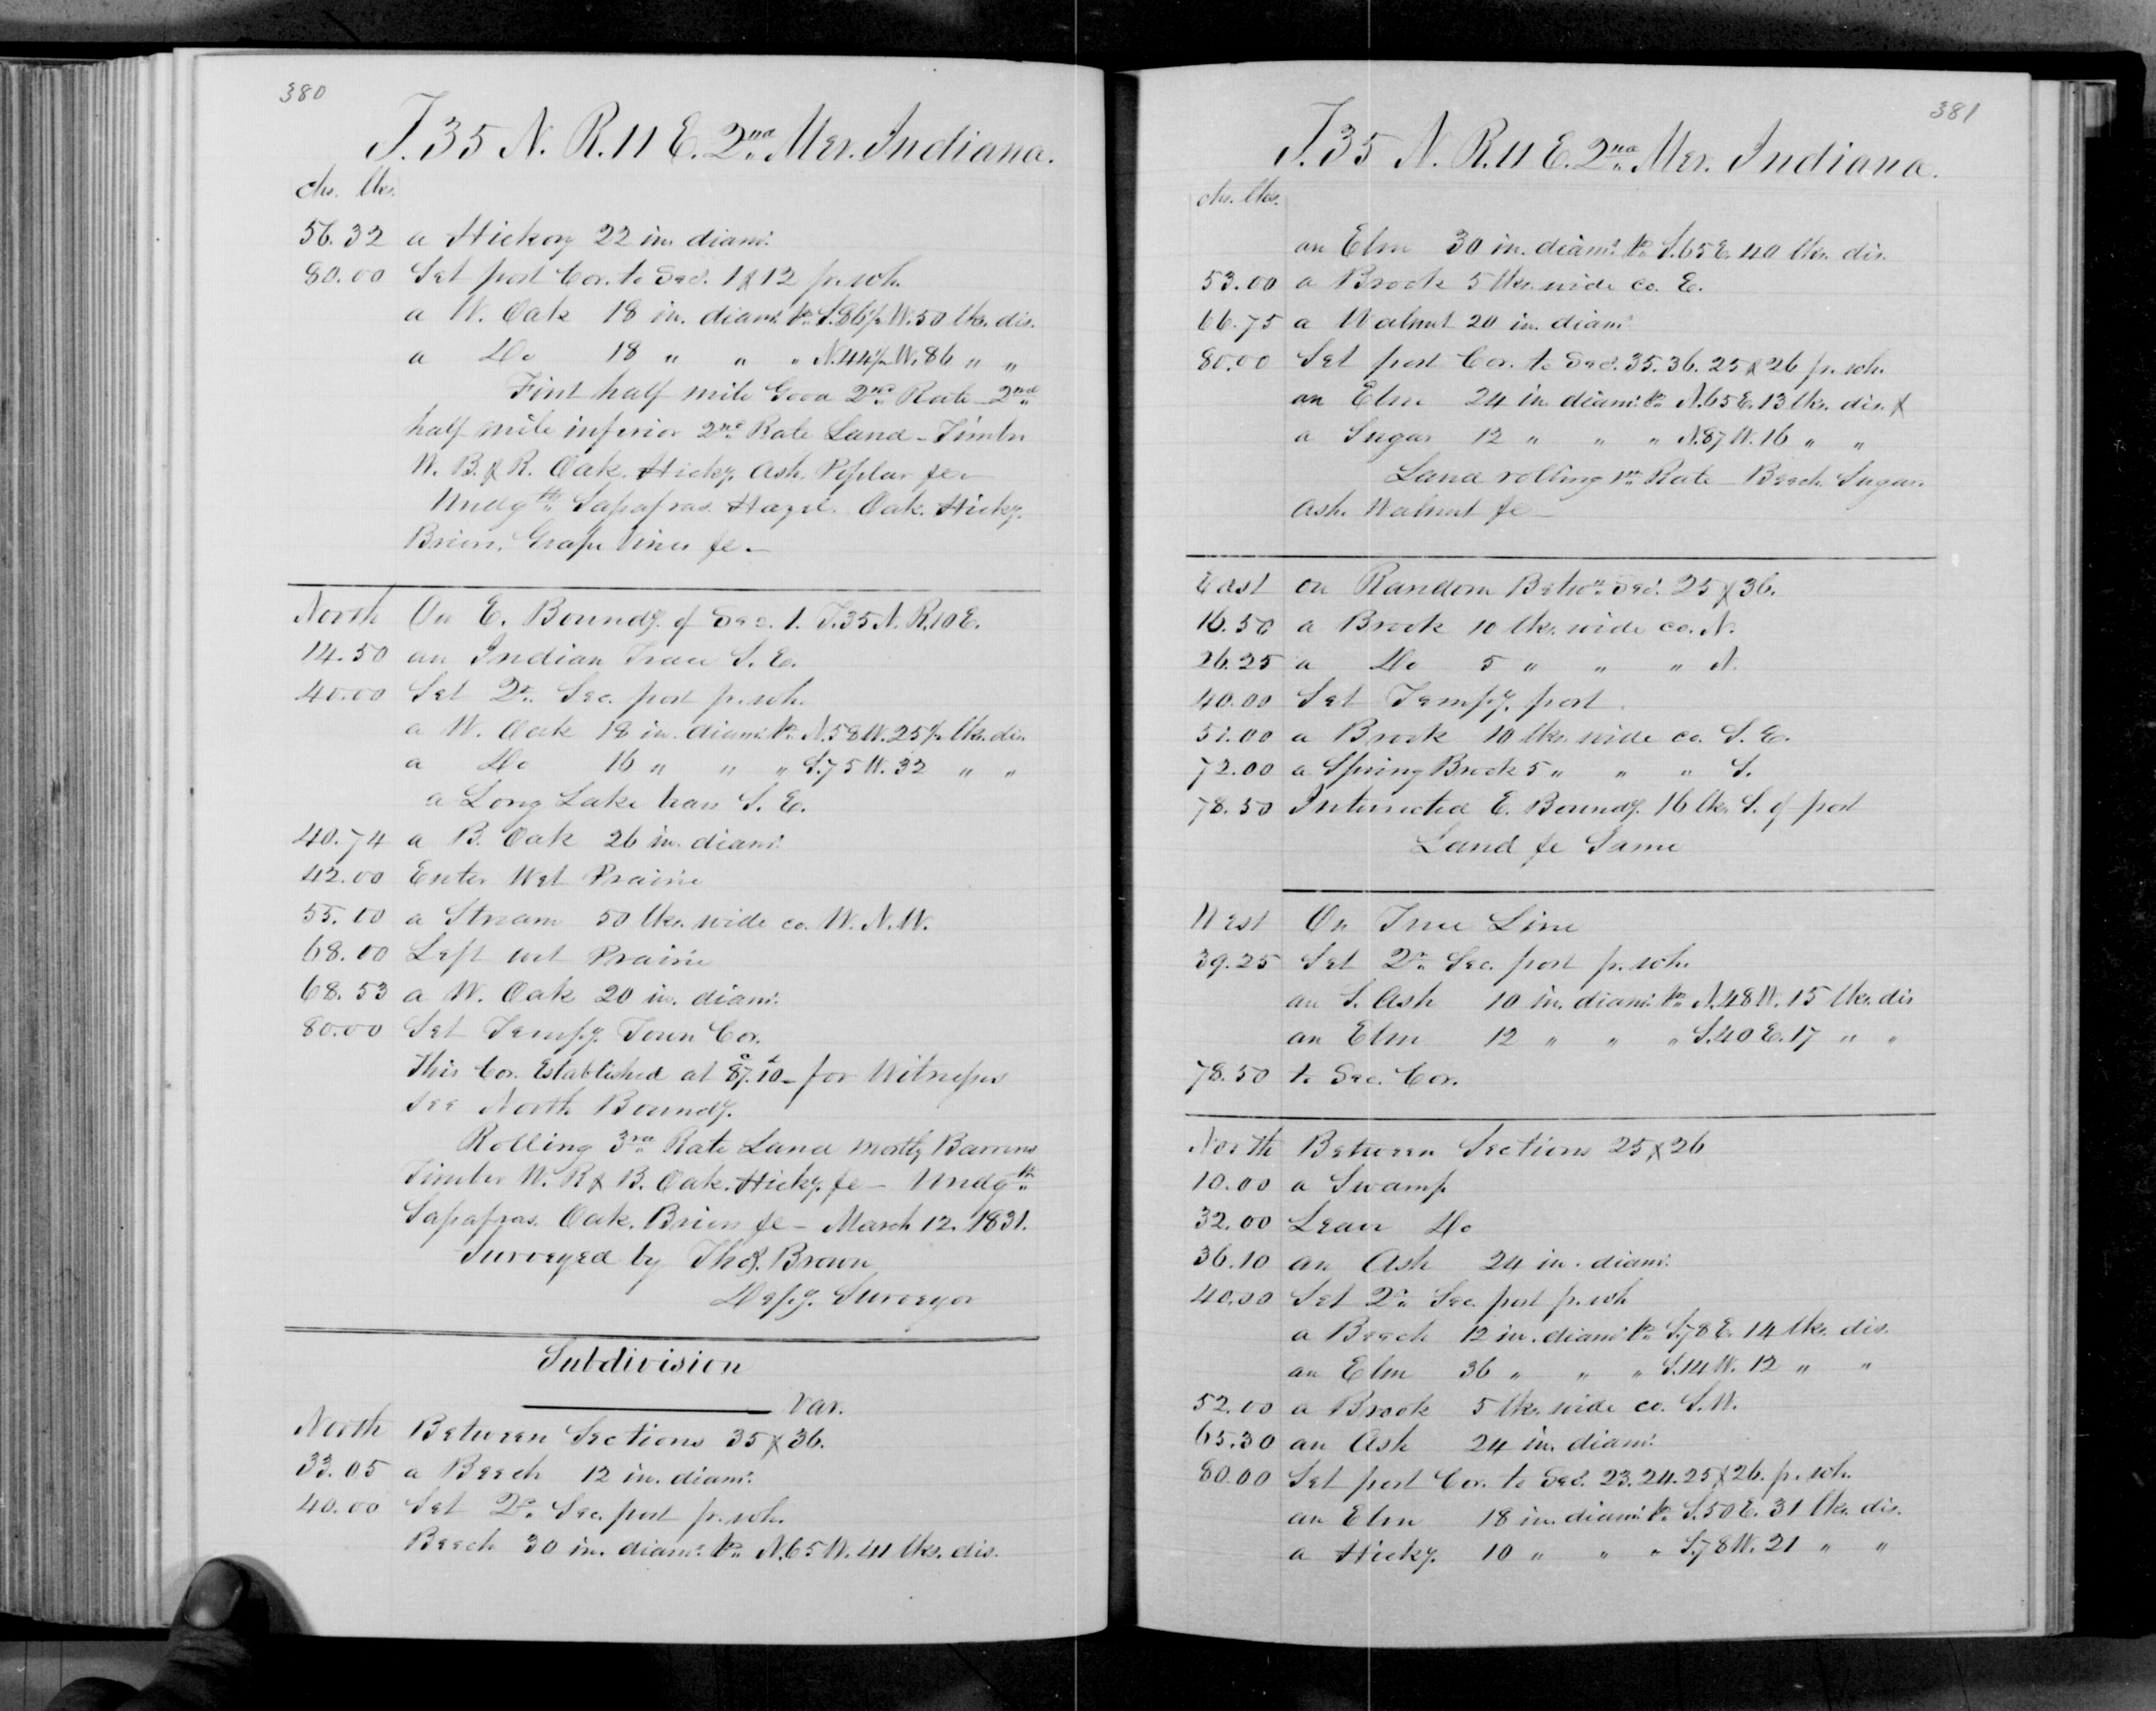 380
T. 35 N. R. 11 E. 2nd Mer. Indiana.
chs. lks.
56.32 a Hickory 22 in. diam.
80.00 Set post Cor. to Secs. 1 & 12 pr. sch.
a W. Oak 18 in. diam. br. S. 86½ W. 50 lks. dis.
a Do 18 " " " N. 44½ W. 86 " "
First half mile Good 2nd Rate - 2nd
half mile inferior 2nd Rate Land - Timber
W. B. & R. Oak. Hicky. Ash. Poplar &c -
Undgth. Sassafras. Hazel. Oak. Hicky.
Briers, Grape Vines &c -
North On E. Boundy. of Sec. 1. T. 35 N. R. 10 E.
14.50 an Indian Trace S. E.
40.00 Set Qr. Sec. post pr. sch.
a W. Oak 18 in. diam. br. N. 58 W. 25½ lks. dis
a Do 16 " " " S. 75 W. 32 " "
a Long Lake bears S. E.
40.74 a B. Oak 26 in. diam.
42.00 Enter Wet Prairie
55.00 a Stream 50 lks. wide co. W. N. W.
68.00 Left wet Prairie
68.53 a W. Oak 20 in. diam.
80.00 Set Tempy. Town Cor.
This Cor. Established at 87c. 10l - for Witnesses
see North Boundy.
Rolling 3rd Rate Land mostly Barrens
Timber W. R & B. Oak. Hicky. &c - Undgth
Sassafras. Oak. Briers &c - March 12. 1831.
Surveyed by Thos. Brown
Depy. Surveyor
Subdivision
Var.
North Between Sections 35 & 36.
33.05 a Beech 12 in. diam.
40.00 Set Qr. Sec. post pr. sch.
Beech 30 in. diam. br. N. 65 W. 41 lks. dis.
381
T. 35 N. R. 11 E. 2nd Mer. Indiana.
chs. lks.
an Elm 30 in. diam. br. S. 65 E. 40 lks. dis.
53.00 a Brook 5 lks. wide co. E.
66.75 a Walnut 20 in. diam.
80.00 Set post Cor. to Secs. 35. 36. 25 & 26 pr. sch.
an Elm 24 in. diam. br. N. 65 E. 13 lks. dis. &
a Sugar 12 " " " N. 87 W. 16 " "
Land rolling 1st Rate - Beech. Sugar.
Ash. Walnut &c -
East on Random Betwn. Secs. 25 & 36.
16.50 a Brook 10 lks. wide co. N.
26.25 a Do 5 " " " N.
40.00 Set Tempy. post.
51.00 a Brook 10 lks. wide co. S. E.
72.00 a Spring Brook 5 " " " S.
78.50 Intersected E. Boundy. 16 lks. S. of post
Land &c Same
West On True Line
39.25 Set Qr. Sec. post pr. sch.
an S. Ash 10 in. diam. br. N. 48 W. 15 lks. dis
an Elm 12 " " " S. 40 E. 17 " "
78.50 to Sec. Cor.
North Between Sections 25 & 26
10.00 a Swamp
32.00 Leave Do
36.10 an Ash 24 in. diam.
40.00 Set Qr. Sec. post pr. sch
a Beech 12 in. diam. br. S. 78 E. 14 lks. dis.
an Elm 36 " " " S. 14 W. 12 " "
52.00 a Brook 5 lks. wide co. S. W.
65.30 an Ash 24 in. diam.
80.00 Set post Cor. to Secs. 23. 24. 25 & 26. pr. sch.
an Elm 18 in. diam. br. S. 50 E. 31 lks. dis.
a Hicky. 10 " " " S. 78 W. 21 " "